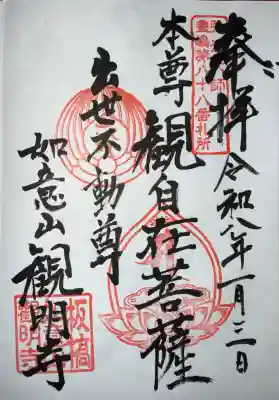 奉拝 令和八年一月三日
豊嶋第八十八番札所
本尊 觀自在菩薩
出世不動尊
如意山 觀明寺
板橋
觀明寺